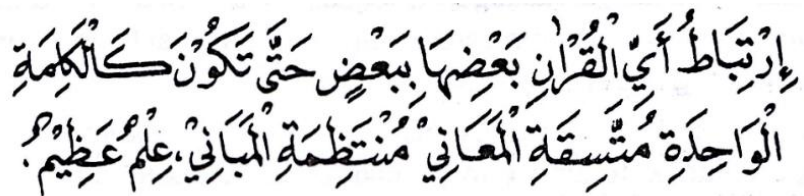 إِرْتِبَاطُ أَيِّ الْقُرْاٰنِ بَعْضِهَا بِبَعْضٍ حَتَّى تَكُوْنَ كَالْكَلِمَةِ
الْوَاحِدَةِ مُتَّسِقَةِ الْمَعَانِيْ مُنْتَظِمَةِ الْمَبَانِيْ، عِلْمٌ عَظِيْمٌ.